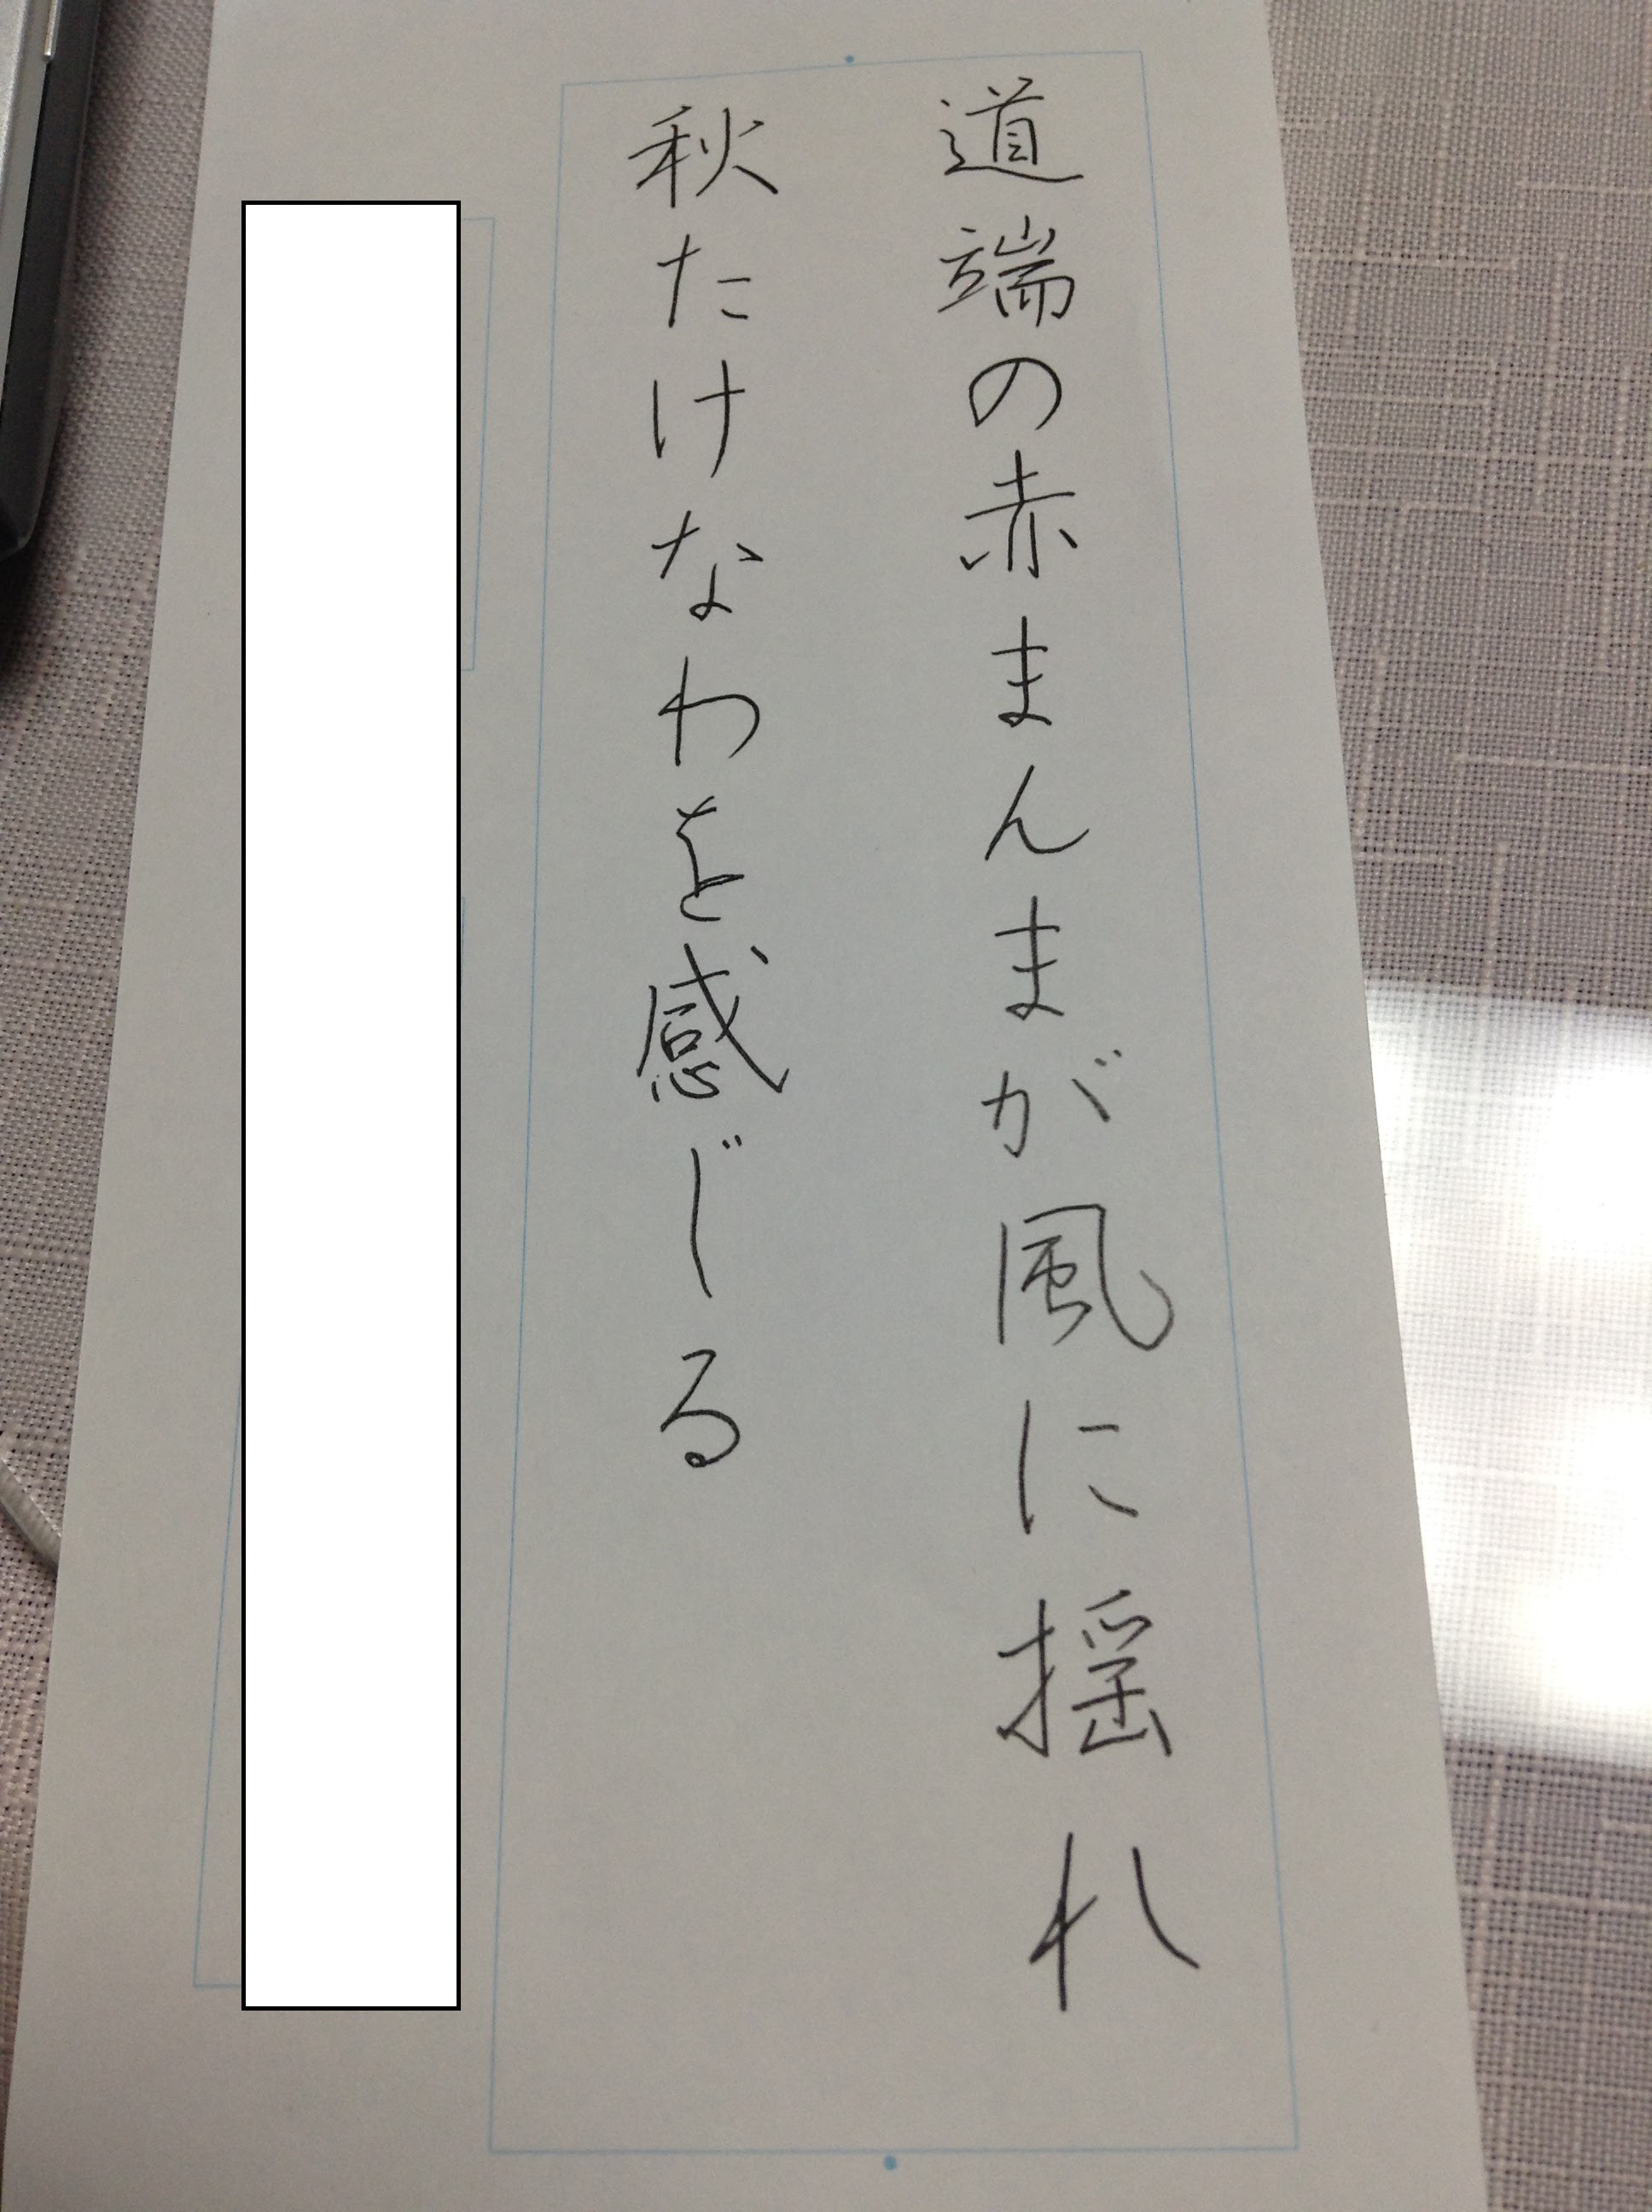 道端の赤まんまが風に揺れ
秋たけなわを感じる